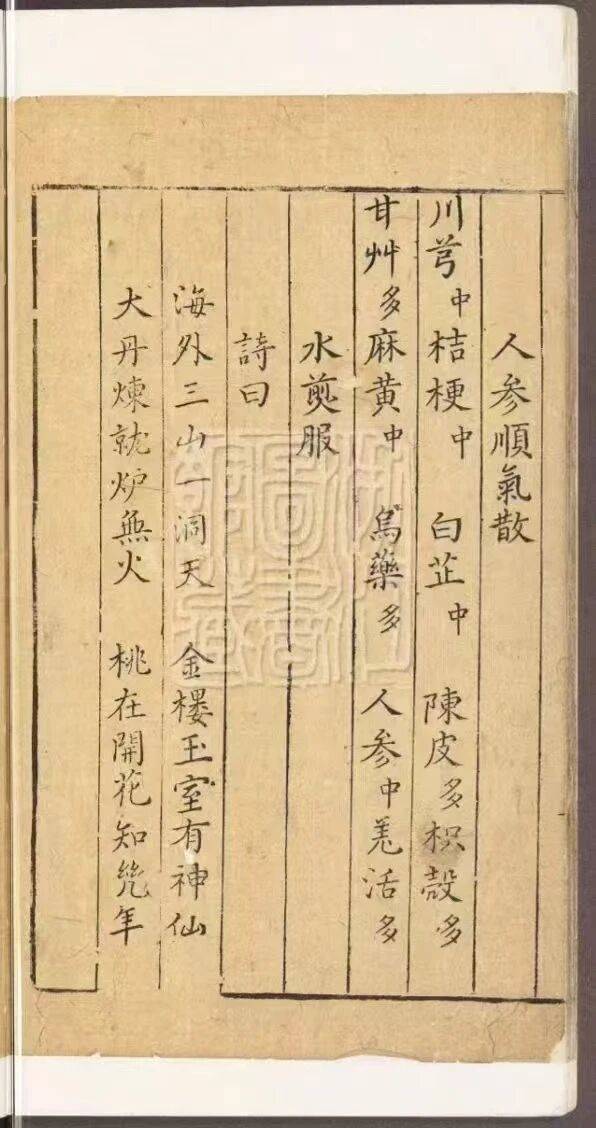 人參順氣散
川芎中桔梗中 白芷中 陳皮多枳殼多
甘艸多麻黄中 烏藥多 人参中羌活多
水煎服
詩曰
海外三山一洞天 金楼玉室有神仙
大丹煉就炉無火 桃在開花知幾年